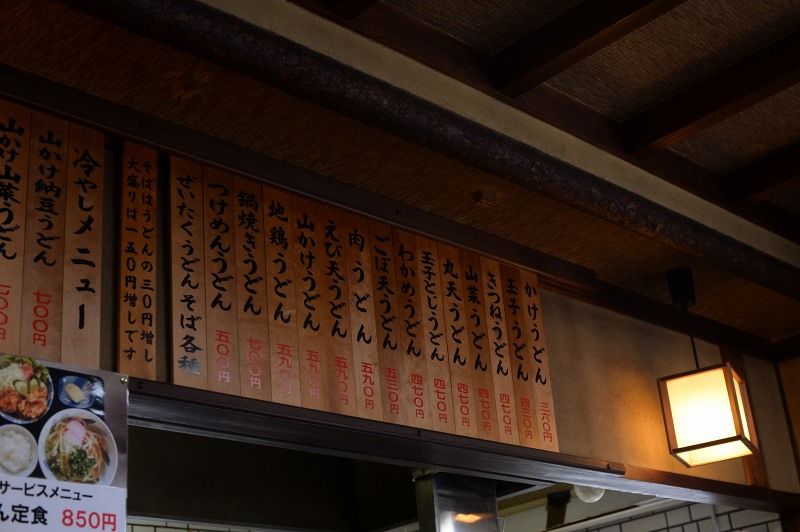 かけうどん 三六〇円
玉子うどん 四三〇円
きつねうどん 四七〇円
山菜うどん 四七〇円
丸天うどん 四七〇円
玉子とじうどん 四七〇円
わかめうどん 四七〇円
ごぼ天うどん 五三〇円
肉うどん 五九〇円
えび天うどん 五九〇円
山かけうどん 五九〇円
地鶏うどん 五九〇円
鍋焼きうどん 七〇〇円
つけめんうどん 五〇〇円
ぜいたくうどんそば各種
そばはうどんの三〇円増し
大盛りは一五〇円増しです
冷やしメニュー
山かけ納豆うどん 七〇〇円
山かけ山菜うどん 七〇〇円
サービスメニュー
ん定食 850円